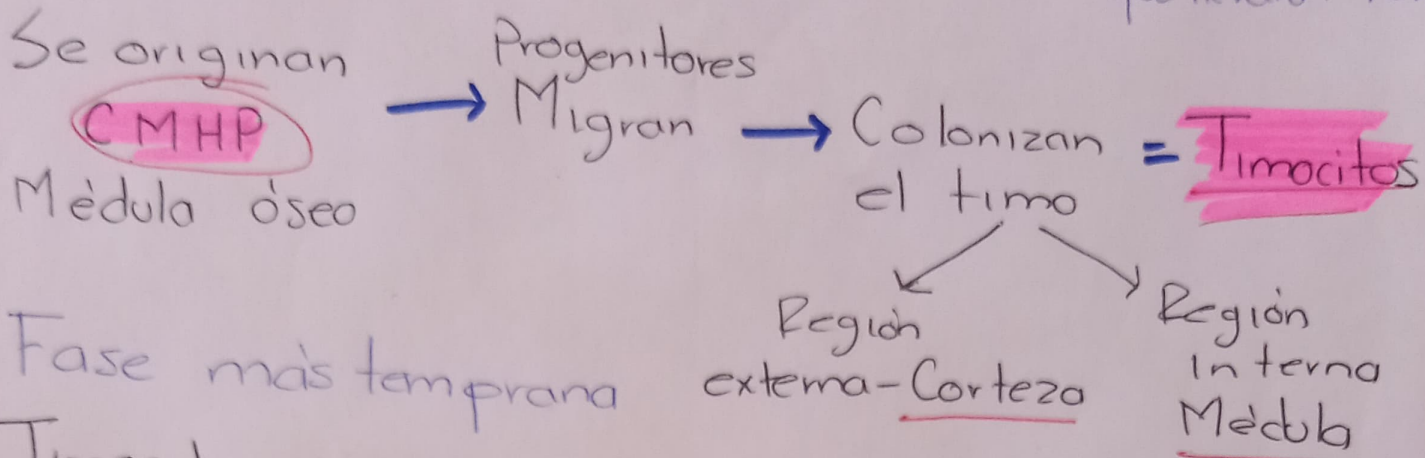 Se originan
CMHP
Médula óseo
→ Progenitores
Migran
→ Colonizan
el timo
= Timocitos
Región
externa-Corteza
Región
interna
Médula
Fase más temprana